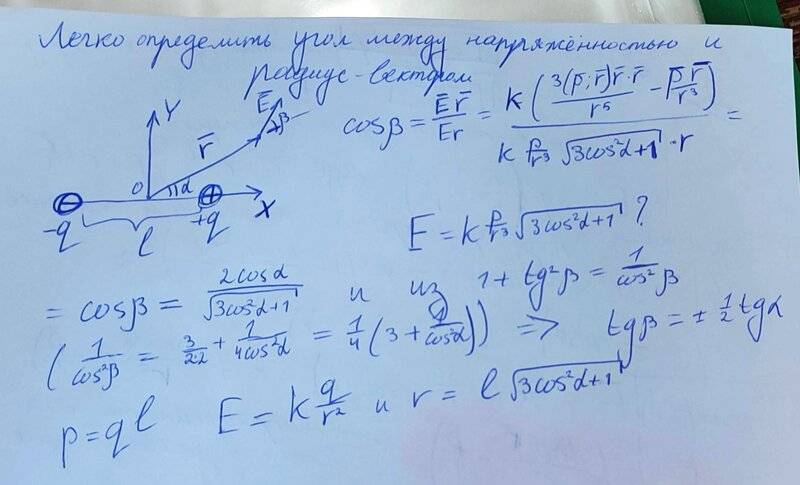 Легко определить угол между напряжённостью и
радиус-вектором
cosβ = E̅r̅/Er = k(3(p̅,r̅)r̅·r̅/r⁵ − p̅r̅/r³)/(k p/r³ √(3cos²α+1) · r) =
Y E̅ β r̅ O α X
-q +q
l
E = k p/r³ √(3cos²α+1) ?
= cosβ = 2cosα/√(3cos²α+1) и из 1 + tg²β = 1/cos²β
(1/cos²β = 3/22 + 1/4cos²α = 1/4(3 + 1/cos²α)) => tgβ = ± 1/2 tgα
p = ql E = k q/r² и r = l√(3cos²α+1)